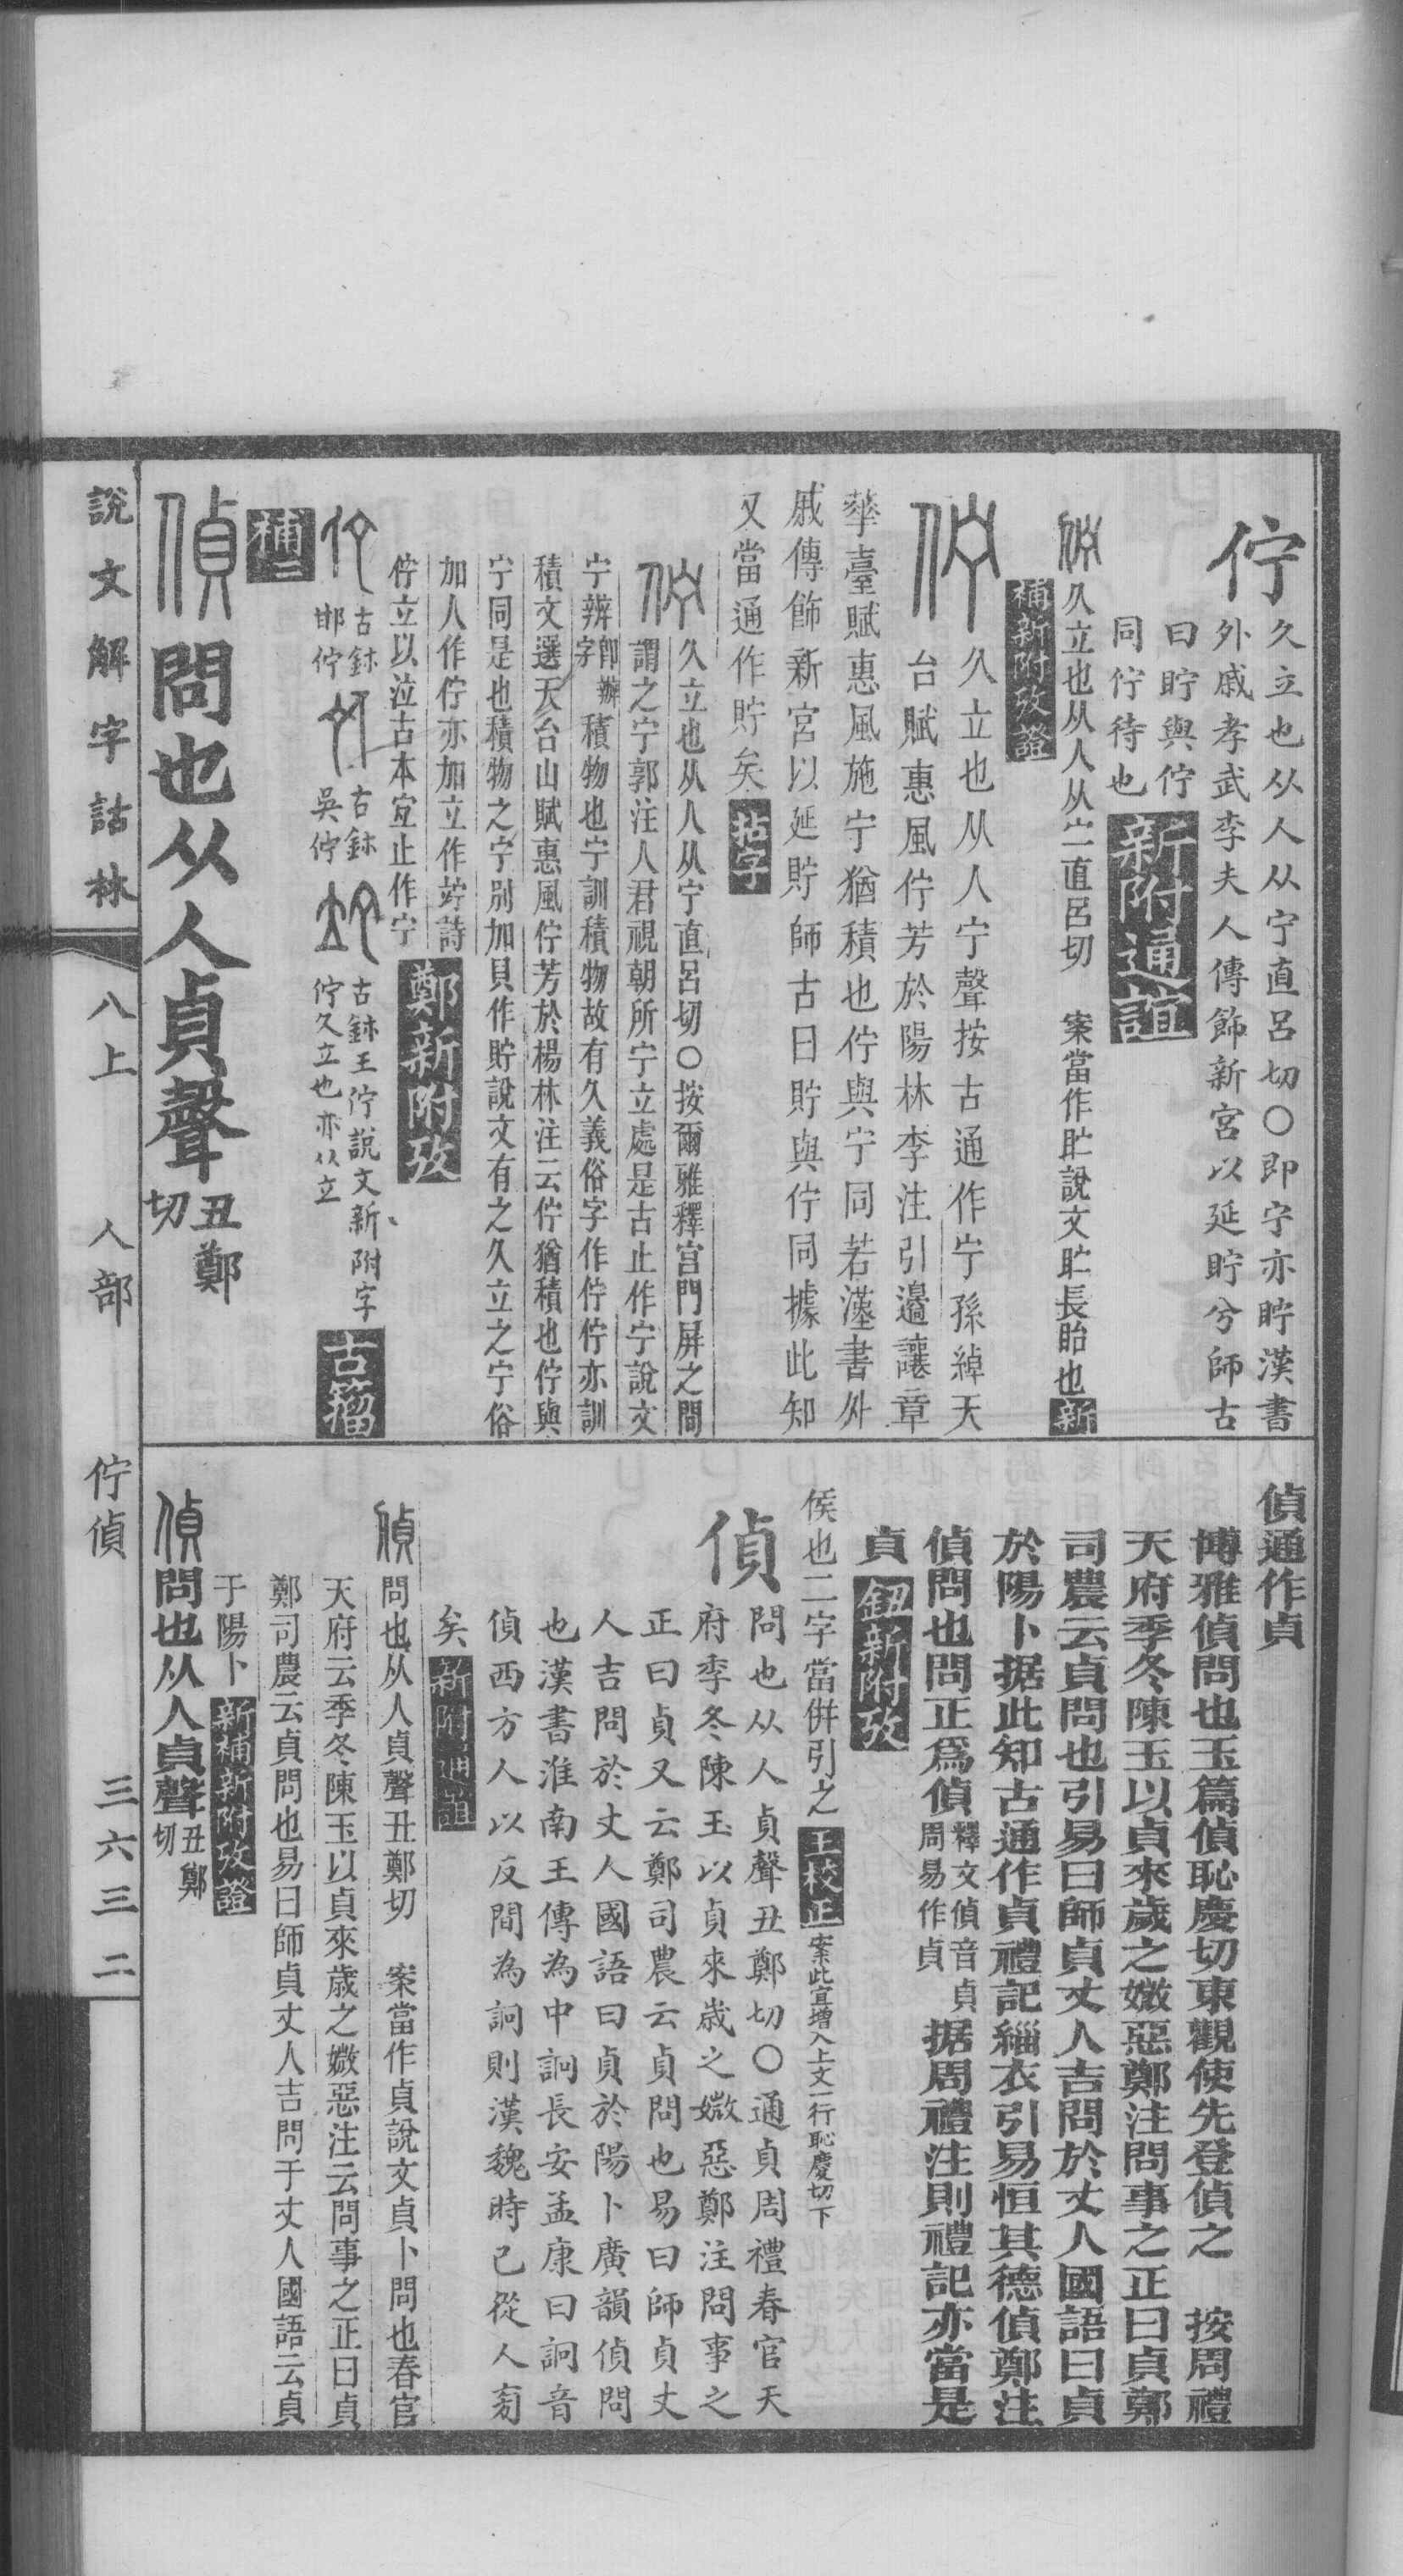 佇
久立也从人从宁直呂切〇即宁亦貯漢書
外戚孝武李夫人傳飾新宮以延貯兮師古
曰貯與佇
同佇待也
新附通誼
久立也从人从宁直呂切　案當作眝說文眝長眙也
新補新附攷證
久立也从人宁聲按古通作宁孫綽天
台賦惠風佇芳於陽林李注引邊讓章
華臺賦惠風施宁猶積也佇與宁同若漢書外
戚傳飾新宮以延貯師古曰貯與佇同據此知
又當通作貯矣
拈字
久立也从人从宁直呂切〇按爾雅釋宮門屏之間
謂之宁郭注人君視朝所宁立處是古止作宁說文
宁辨
卽辦
字
積物也宁訓積物故有久義俗字作佇佇亦訓
積文選天台山賦惠風佇芳於楊林注云佇猶積也佇與
宁同是也積物之宁別加貝作貯說文有之久立之宁俗
加人作佇亦加立作竚詩
佇立以泣古本宜止作宁
鄭新附攷
古鉢
邯佇
古鉢
吳佇
古鉢王佇說文新附字
佇久立也亦从立
古籀
補二
偵問也从人貞聲
丑鄭
切
說文解字詁林
八上　人部　佇偵
三六三二
偵通作貞
博雅偵問也玉篇偵恥慶切東觀使先登偵之　按周禮
天府季冬陳玉以貞來歲之媺惡鄭注問事之正曰貞鄭
司農云貞問也引易曰師貞丈人吉問於丈人國語曰貞
於陽卜据此知古通作貞禮記緇衣引易恒其德偵鄭注
偵問也問正爲偵
釋文偵音貞
周易作貞
据周禮注則禮記亦當是
貞
鈕新附攷
侯也二字當併引之
王校正
案此宜增入上文一行恥慶切下
偵
問也从人貞聲丑鄭切〇通貞周禮春官天
府季冬陳玉以貞來歲之媺惡鄭注問事之
正曰貞又云鄭司農云貞問也易曰師貞丈
人吉問於丈人國語曰貞於陽卜廣韻偵問
也漢書淮南王傳為中詗長安孟康曰詗音
偵西方人以反間為詗則漢魏時已從人㫄
矣
新附通誼
偵
問也从人貞聲丑鄭切　案當作貞說文貞卜問也春官
天府云季冬陳玉以貞來歲之媺惡注云問事之正曰貞
鄭司農云貞問也易曰師貞丈人吉問于丈人國語云貞
于陽卜
新補新附攷證
偵問也从人貞聲
丑鄭
切